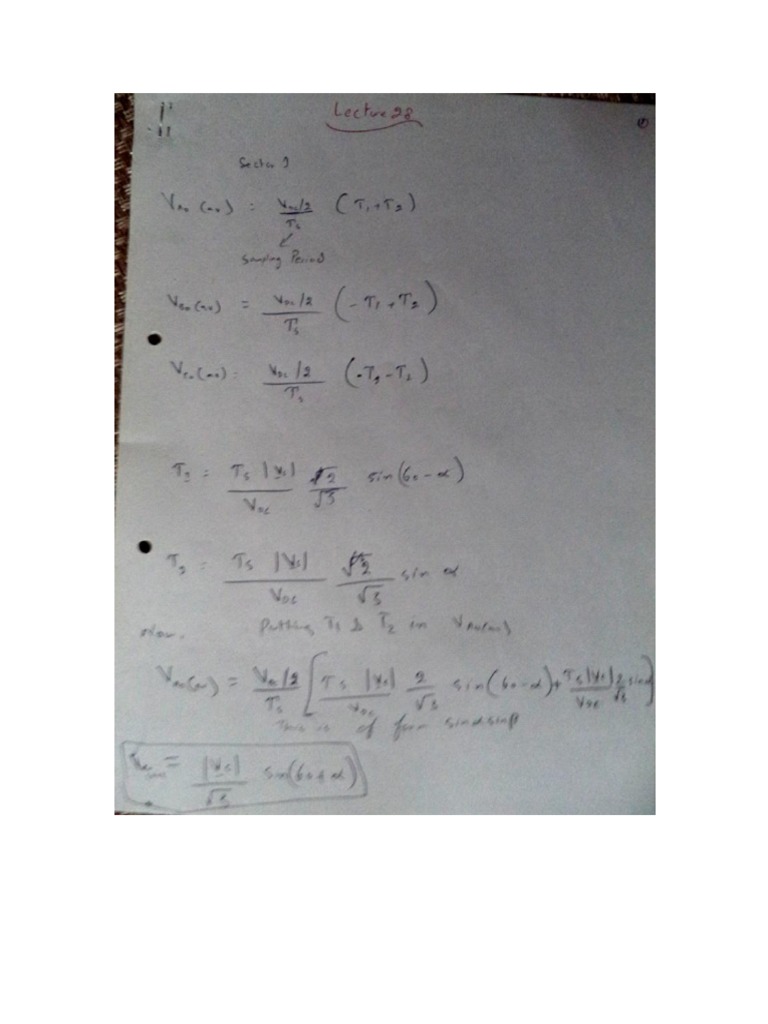 Lecture 28
Sector 1
V_AO(av) = V_DC/2 / T_s (T_1 + T_2)
Sampling Period
V_BO(av) = V_DC/2 / T_s (-T_1 + T_2)
V_CO(av) = V_DC/2 / T_s (-T_1 - T_2)
T_1 = T_s |V_s| / V_DC 2/√3 sin(60-α)
T_2 = T_s |V_s| / V_DC 2/√3 sin α
Now. Putting T_1 & T_2 in V_AO(av)
V_AO(av) = V_DC/2 / T_s [T_s |V_s| / V_DC 2/√3 sin(60-α) + T_s |V_s| / V_DC 2/√3 sin α]
This is of form sinα sinβ
= |V_s| / √3 sin(60+α)